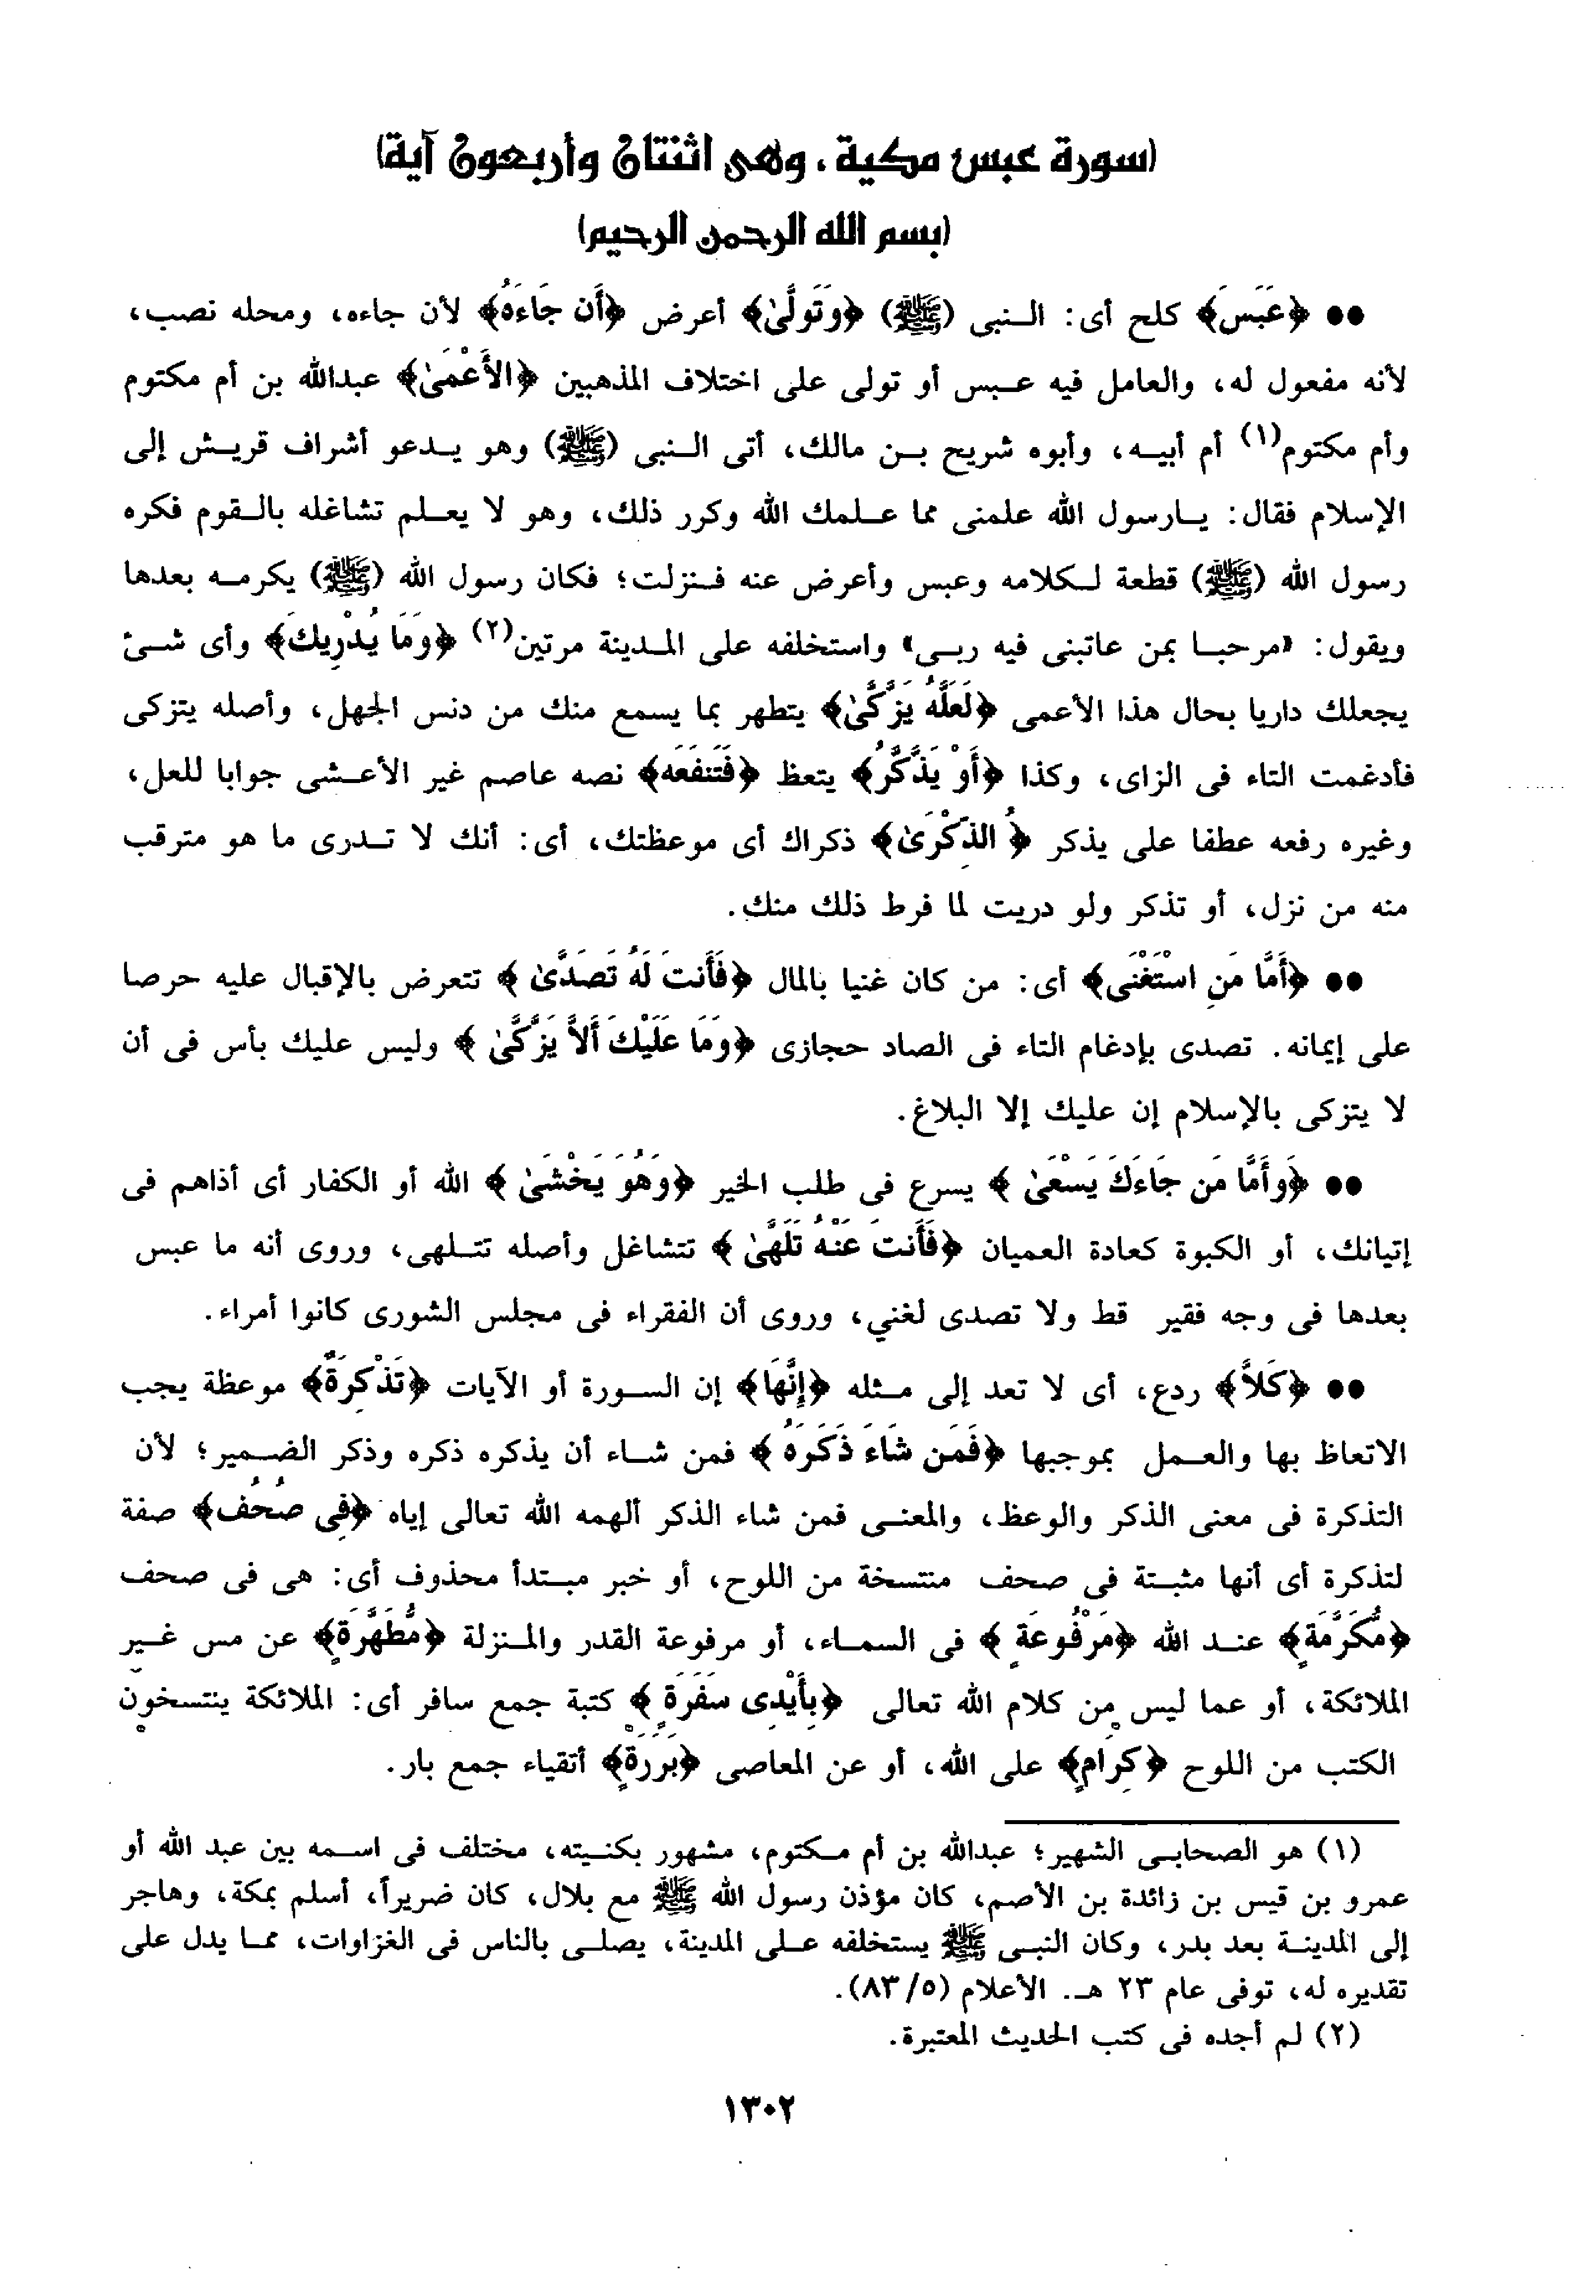 (سورة عبس مكية، وهى اثنتان وأربعون آية)
(بسم الله الرحمن الرحيم)
●● ﴿عَبَسَ﴾ كلح أى: النبى (ﷺ) ﴿وَتَوَلَّىٰ﴾ أعرض ﴿أَن جَاءَهُ﴾ لأن جاءه، ومحله نصب،
لأنه مفعول له، والعامل فيه عبس أو تولى على اختلاف المذهبين ﴿الأَعْمَىٰ﴾ عبدالله بن أم مكتوم
وأم مكتوم(١) أم أبيه، وأبوه شريح بن مالك، أتى النبى (ﷺ) وهو يدعو أشراف قريش إلى
الإسلام فقال: يارسول الله علمنى مما علمك الله وكرر ذلك، وهو لا يعلم تشاغله بالقوم فكره
رسول الله (ﷺ) قطعة لكلامه وعبس وأعرض عنه فنزلت؛ فكان رسول الله (ﷺ) يكرمه بعدها
ويقول: «مرحبا بمن عاتبنى فيه ربى» واستخلفه على المدينة مرتين(٢) ﴿وَمَا يُدْرِيكَ﴾ وأى شئ
يجعلك داريا بحال هذا الأعمى ﴿لَعَلَّهُ يَزَّكَّىٰ﴾ يتطهر بما يسمع منك من دنس الجهل، وأصله يتزكى
فأدغمت التاء فى الزاى، وكذا ﴿أَوْ يَذَّكَّرُ﴾ يتعظ ﴿فَتَنفَعَه﴾ نصه عاصم غير الأعشى جوابا للعل،
وغيره رفعه عطفا على يذكر ﴿الذِّكْرَىٰ﴾ ذكراك أى موعظتك، أى: أنك لا تدرى ما هو مترقب
منه من نزل، أو تذكر ولو دريت لما فرط ذلك منك.
●● ﴿أَمَّا مَنِ اسْتَغْنَى﴾ أى: من كان غنيا بالمال ﴿فَأَنتَ لَهُ تَصَدَّىٰ﴾ تتعرض بالإقبال عليه حرصا
على إيمانه. تصدى بإدغام التاء فى الصاد حجازى ﴿وَمَا عَلَيْكَ أَلاَّ يَزَّكَّىٰ﴾ وليس عليك بأس فى أن
لا يتزكى بالإسلام إن عليك إلا البلاغ.
●● ﴿وَأَمَّا مَن جَاءَكَ يَسْعَىٰ﴾ يسرع فى طلب الخير ﴿وَهُوَ يَخْشَىٰ﴾ الله أو الكفار أى أذاهم فى
إتيانك، أو الكبوة كعادة العميان ﴿فَأَنتَ عَنْهُ تَلَهَّىٰ﴾ تتشاغل وأصله تتلهى، وروى أنه ما عبس
بعدها فى وجه فقير قط ولا تصدى لغني، وروى أن الفقراء فى مجلس الشورى كانوا أمراء.
●● ﴿كَلاَّ﴾ ردع، أى لا تعد إلى مثله ﴿إِنَّهَا﴾ إن السورة أو الآيات ﴿تَذْكِرَةٌ﴾ موعظة يجب
الاتعاظ بها والعمل بموجبها ﴿فَمَن شَاءَ ذَكَرَهُ﴾ فمن شاء أن يذكره ذكره وذكر الضمير؛ لأن
التذكرة فى معنى الذكر والوعظ، والمعنى فمن شاء الذكر ألهمه الله تعالى إياه ﴿فِى صُحُفٍ﴾ صفة
لتذكرة أى أنها مثبتة فى صحف منتسخة من اللوح، أو خبر مبتدأ محذوف أى: هى فى صحف
﴿مُّكَرَّمَةٍ﴾ عند الله ﴿مَرْفُوعَةٍ﴾ فى السماء، أو مرفوعة القدر والمنزلة ﴿مُّطَهَّرَةٍ﴾ عن مس غير
الملائكة، أو عما ليس من كلام الله تعالى ﴿بِأَيْدِى سَفَرَةٍ﴾ كتبة جمع سافر أى: الملائكة ينتسخون
الكتب من اللوح ﴿كِرَامٍ﴾ على الله، أو عن المعاصى ﴿بَرَرَةٍ﴾ أتقياء جمع بار.
(١) هو الصحابى الشهير؛ عبدالله بن أم مكتوم، مشهور بكنيته، مختلف فى اسمه بين عبد الله أو
عمرو بن قيس بن زائدة بن الأصم، كان مؤذن رسول الله ﷺ مع بلال، كان ضريراً، أسلم بمكة، وهاجر
إلى المدينة بعد بدر، وكان النبى ﷺ يستخلفه على المدينة، يصلى بالناس فى الغزاوات، مما يدل على
تقديره له، توفى عام ٢٣ هـ. الأعلام (٨٣/٥).
(٢) لم أجده فى كتب الحديث المعتبرة.
١٣٠٢